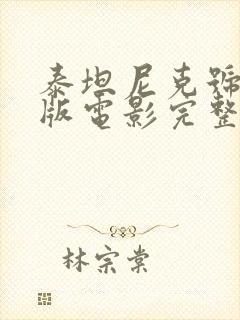 泰坦尼克號
版電影完整
林宗棠